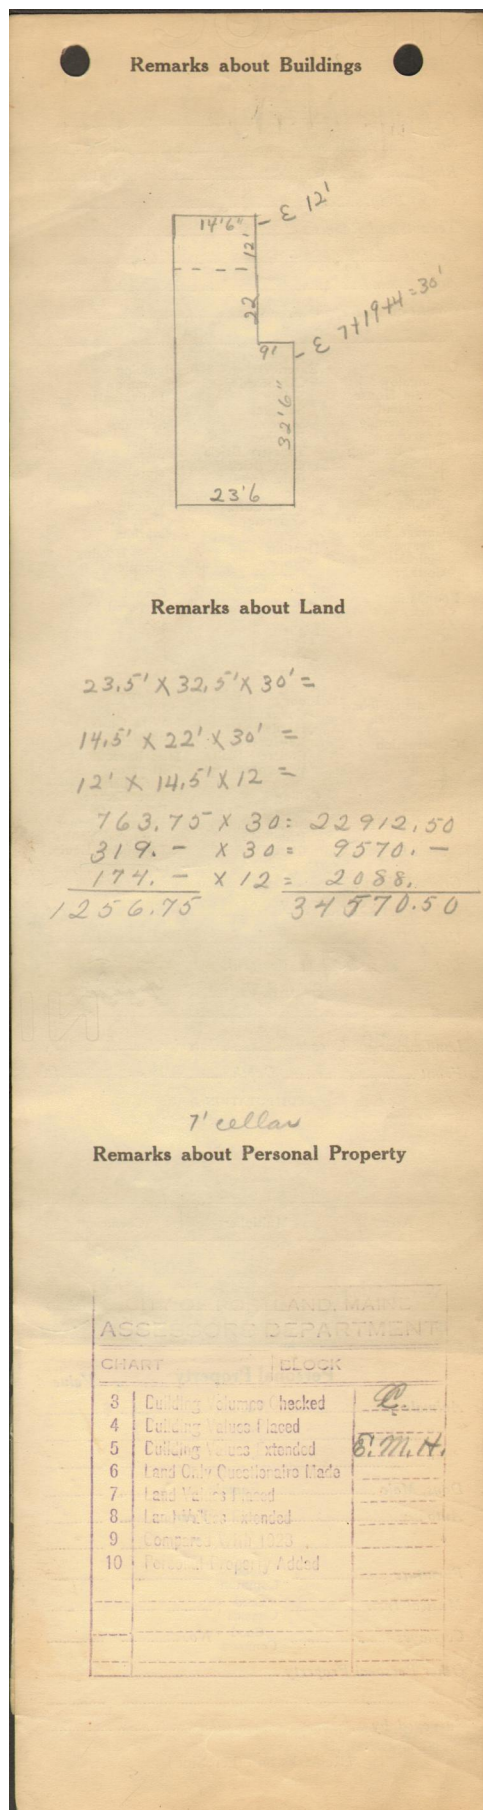 Remarks about Buildings
14'6" - ε 12'
12'
22
9' - ε 7+19+4=30'
32'6"
23'6
Remarks about Land
23.5' X 32.5' X 30' =
14.5' X 22' X 30' =
12' X 14.5' X 12 =
763.75 X 30 = 22912.50
319. - X 30 = 9570. -
174. - X 12 = 2088.
1256.75 34570.50
7' cellar
Remarks about Personal Property
LAND, MAINE
ASSESSORS DEPARTMENT
CHART BLOCK
3 Building Volumes Checked C.
4 Building Values Placed
5 Building Values Extended E.M.H.
6 Land Only Questionaire Made
7 Land Values Placed
8 Land Values Extended
9 Compared With 1923
10 Personal Property Added